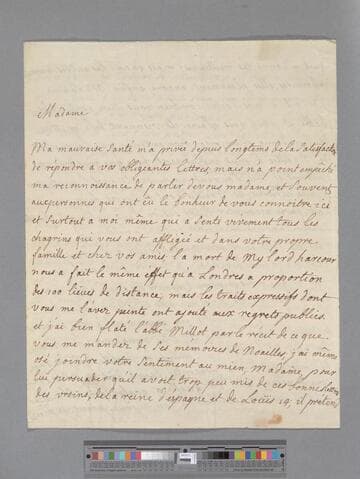 Madame
Ma mauvaise santé m'a privée depuis longtems de la satisfaction
de répondre a vos obligeantes lettres, mais n'a point empeché
ma reconnoissance de parler de vous madame, et souvent
aux personnes qui ont eü le bonheur de vous connoitre ici
et surtout a moi même qui a senti vivement tous les
chagrins qui vous ont affligiée et dans votre propre
famille et chez vos amis, la mort de My lord harcour
nous a fait le même effet qu'a Londres a proportion
des 100 lieües de distance, mais les traits expressifs dont
vous me l'avez peinte ont ajouté aux regrets publics.
et j'ai bien flaté l'abbé Millot par le récit de ce que
vous me mandez de ses mémoires de Noailles, j'ai même
osé joindre votre sentiment au mien, Madame, pour
lui persuader qu'il avoit trop peu mis de ces bonnes lettres
des ursins, de la reine d'espagne et de Loüis 14; il prétend